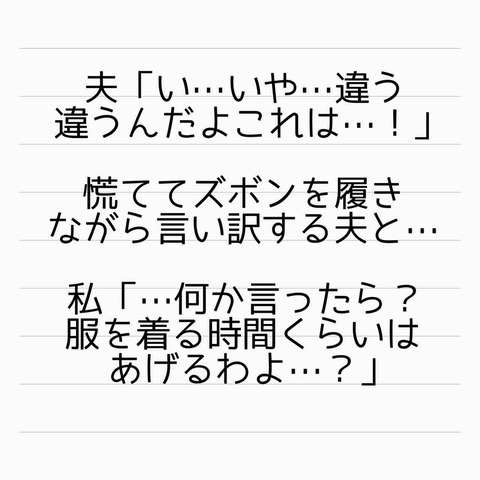 夫「い…いや…違う
違うんだよこれは…！」
慌ててズボンを履き
ながら言い訳する夫と…
私「…何か言ったら？
服を着る時間くらいは
あげるわよ…？」